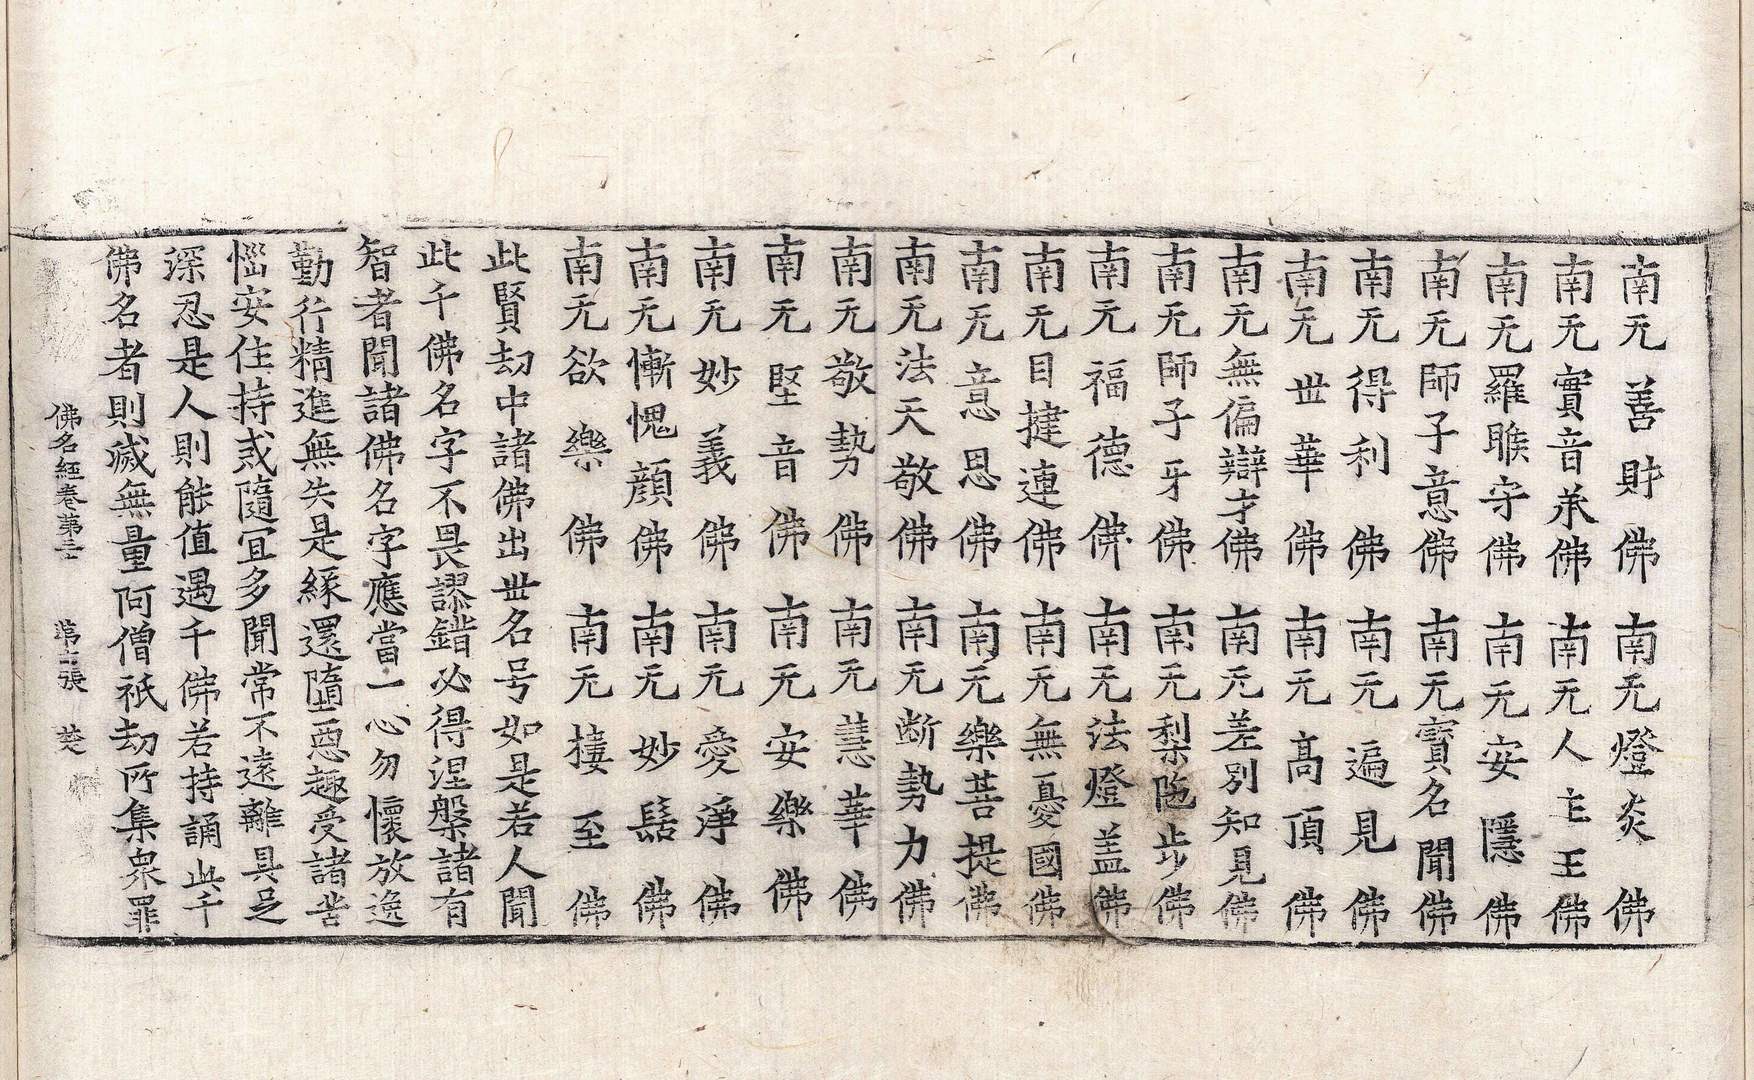 南无善財佛 南无燈炎佛
南无實音承佛 南无人主王佛
南无羅睺守佛 南无安隱佛
南无師子意佛 南无寶名聞佛
南无得利佛 南无遍見佛
南无世華佛 南无高頂佛
南无無偏辯才佛 南无差別知見佛
南无師子牙佛 南无梨陁步佛
南无福德佛 南无法燈盖佛
南无目揵連佛 南无無憂國佛
南无意思佛 南无樂菩提佛
南无法天敬佛 南无断勢力佛
南无敬勢佛 南无慧華佛
南无堅音佛 南无安樂佛
南无妙義佛 南无愛淨佛
南无慚愧顏佛 南无妙髻佛
南无欲樂佛 南无樓至佛
此賢劫中諸佛出世名号如是若人聞
此千佛名字不畏謬錯必得涅槃諸有
智者聞諸佛名字應當一心勿懷放逸
勤行精進無失是緣還墮惡趣受諸苦
惱安住持戒隨宜多聞常不遠離具足
深忍是人則能值遇千佛若持誦此千
佛名者則滅無量阿僧祇劫所集衆罪
佛名經卷第三 第 張 楚